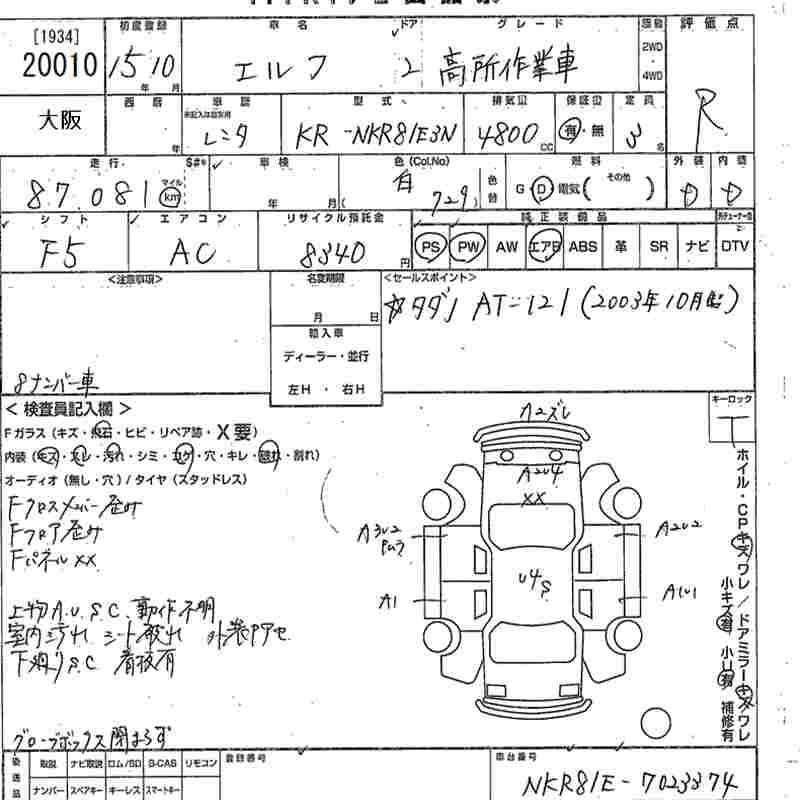 [1934]
20010
初度登録
15 10
年 月
車名
エルフ
ドア
2
グレード
高所作業車
駆動
2WD
・
4WD
評価点
R
大阪
西暦
年
車歴
未記入は自家用
レンタ
型式
KR -NKR81E3N
排気量
4800
CC
保証書
有・無
定員
3
名
走行
87.081
マイル
km
S#
車検
年 月(
色(Col.No)
白
729)
色替
燃料
G D 電気( その他 )
外装
D
内装
D
シフト
F5
エアコン
AC
リサイクル預託金
8340
円
純正装備品
PS PW AW エアB ABS 革 SR ナビ DTV
<注意事項>
8ナンバー車
名変期限
月 日
輸入車
ディーラー・並行
左H・右H
<セールスポイント>
☆タダノ AT-121 (2003年10月製)
< 検査員記入欄 >
Fガラス(キズ・飛石・ヒビ・リペア跡・X要)
内装(キズ・スレ・汚れ・シミ・コゲ・穴・キレ・破れ・割れ)
オーディオ(無し・穴)/タイヤ(スタッドレス)
Fクロスメンバー歪み
Fフロア歪み
Fパネルxx
上物A.U.S.C. 動作不明
室内汚れ シート破れ 外装アセ
下廻りS.C 着板有
グローブボックス閉まらず
A2ズレ
A2U4
XX
A3U2
PUラ
A2U2
U4S
A1
A1U1
キーロック
T
ホイル・CPキズワレ/ドアミラーキズワレ
小キズ有 小U有 補修有
後送品
取説 ナビ取説 ロム/SD B-CAS リモコン
ナンバー スペアキー キーレス スマートキー
登録番号
車台番号
NKR81E-7023374